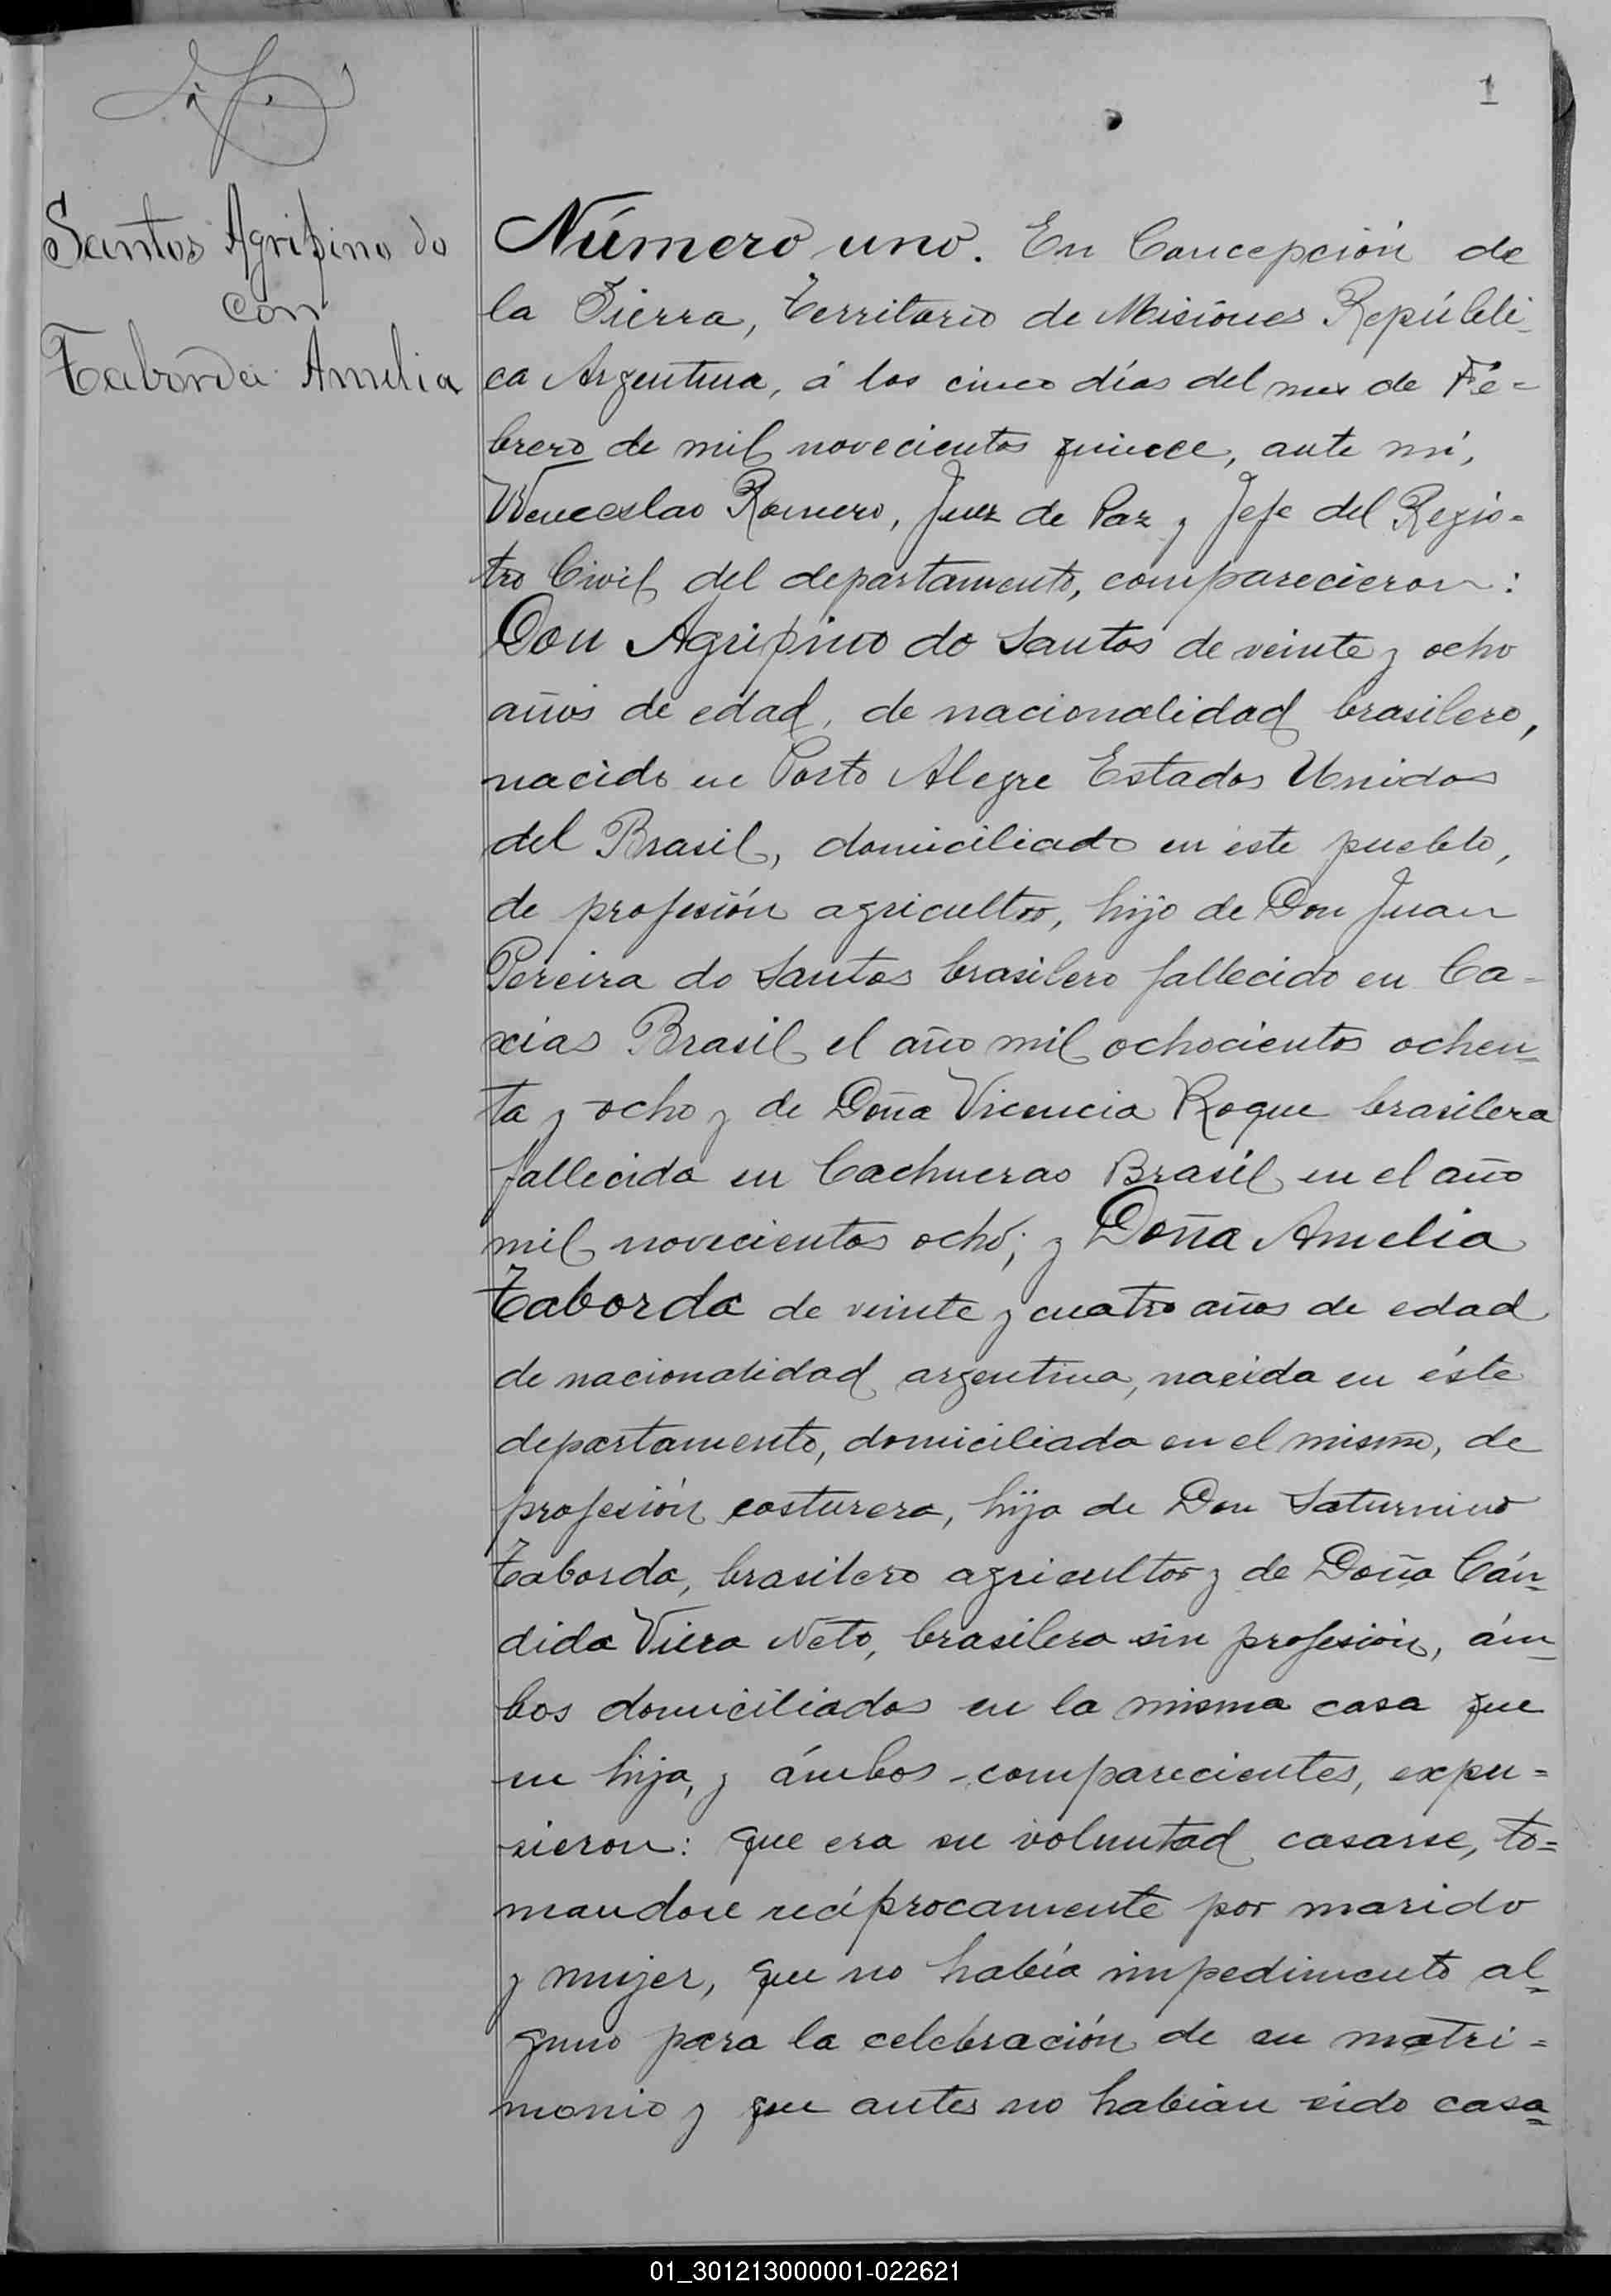 1
Santos Agripino do
con
Taborda Amelia
Número uno. En Concepción de
la Sierra, Territorio de Misiones Repúbli-
ca Argentina, á los cinco días del mes de Fe=
brero de mil novecientos quince, ante mí,
Wenceslao Romero, Juez de Paz y Jefe del Regis=
tro Civil del departamento, comparecieron:
Don Agripino do Santos de veinte y ocho
años de edad, de nacionalidad brasilero,
nacido en Porto Alegre Estados Unidos
del Brasil, domiciliado en éste pueblo,
de profesión agricultor, hijo de Don Juan
Pereira do Santos brasilero fallecido en Ca=
xias Brasil el año mil ochocientos ochen=
ta y ocho y de Doña Vicencia Roque brasilera
fallecida en Cachueras Brasil en el año
mil novecientos ocho; y Doña Amelia
Taborda de veinte y cuatro años de edad
de nacionalidad argentina, nacida en éste
departamento, domiciliada en el mismo, de
profesión costurera, hija de Don Saturnino
Taborda, brasilero agricultor y de Doña Cán=
dida Viera Neto, brasilera sin profesión, ám=
bos domiciliados en la misma casa que
su hija, y ámbos comparecientes, expu=
sieron: que era su voluntad casarse, to=
mandose recíprocamente por marido
y mujer, que no había impedimento al=
guno para la celebración de su matri=
monio y que antes no habian sido casa=
01_301213000001-022621